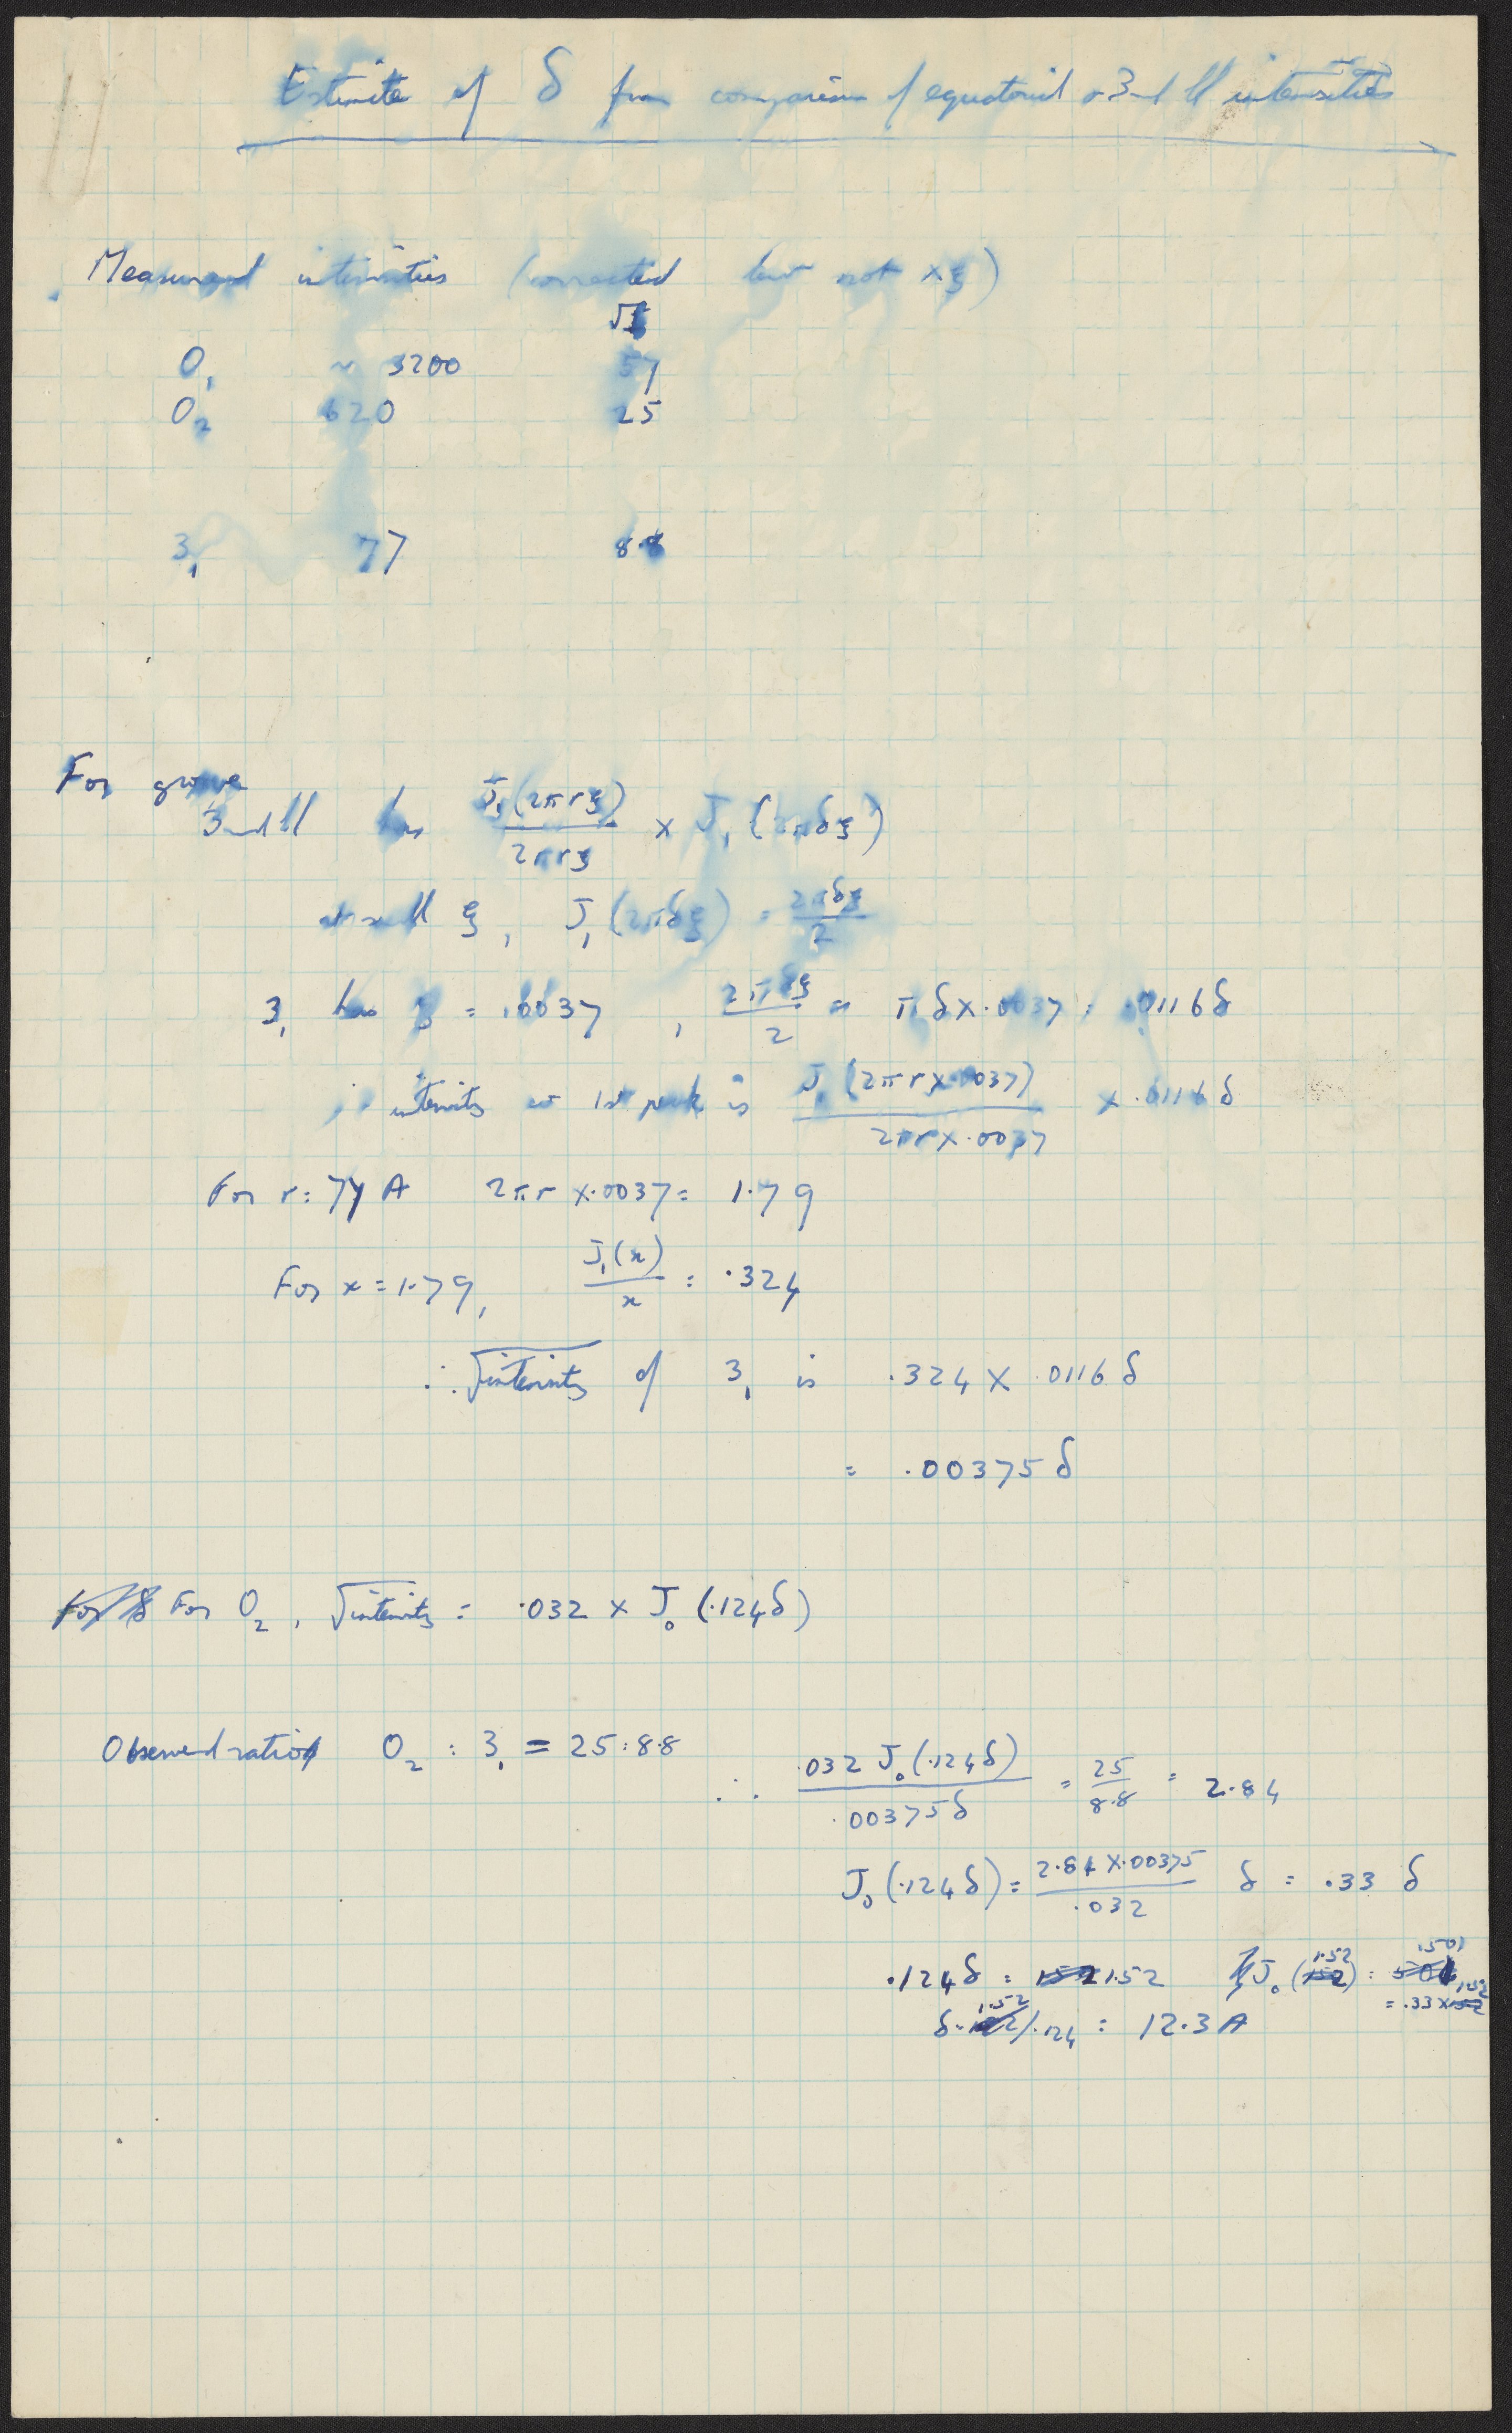 Estimate of δ from comparison of equatorial & 3rd ll intensities
Measured intensities (corrected but not ×ξ)
√I
O₁ ~ 3200 57
O₂ 620 25
3₁ 77 8.8
For groove
3rd ll has J₁(2πrξ)/2πrξ × J₁(2πδξ)
at small ξ, J₁(2πδξ) = 2πδξ/2
3₁ has ξ = .0037, 2πδξ/2 = πδ×.0037 = .0116δ
∴ intensity at 1st peak is J₁(2πr×.0037)/2πr×.0037 × .0116δ
For r = 77 A 2πr×.0037 = 1.79
For x = 1.79, J₁(x)/x = .324
∴ √intensity of 3₁ is .324 × .0116 δ
= .00375 δ
For O₂, √intensity = .032 × J₀(.124δ)
Observed ratio O₂ : 3₁ = 25:8.8
∴ .032 J₀(.124δ)/.00375δ = 25/8.8 = 2.84
J₀(.124δ) = 2.84×.00375/.032 δ = .33 δ
.124δ = 1.52 J₀(1.52) = .501
= .33×1.52
δ = 1.52/.124 = 12.3 A